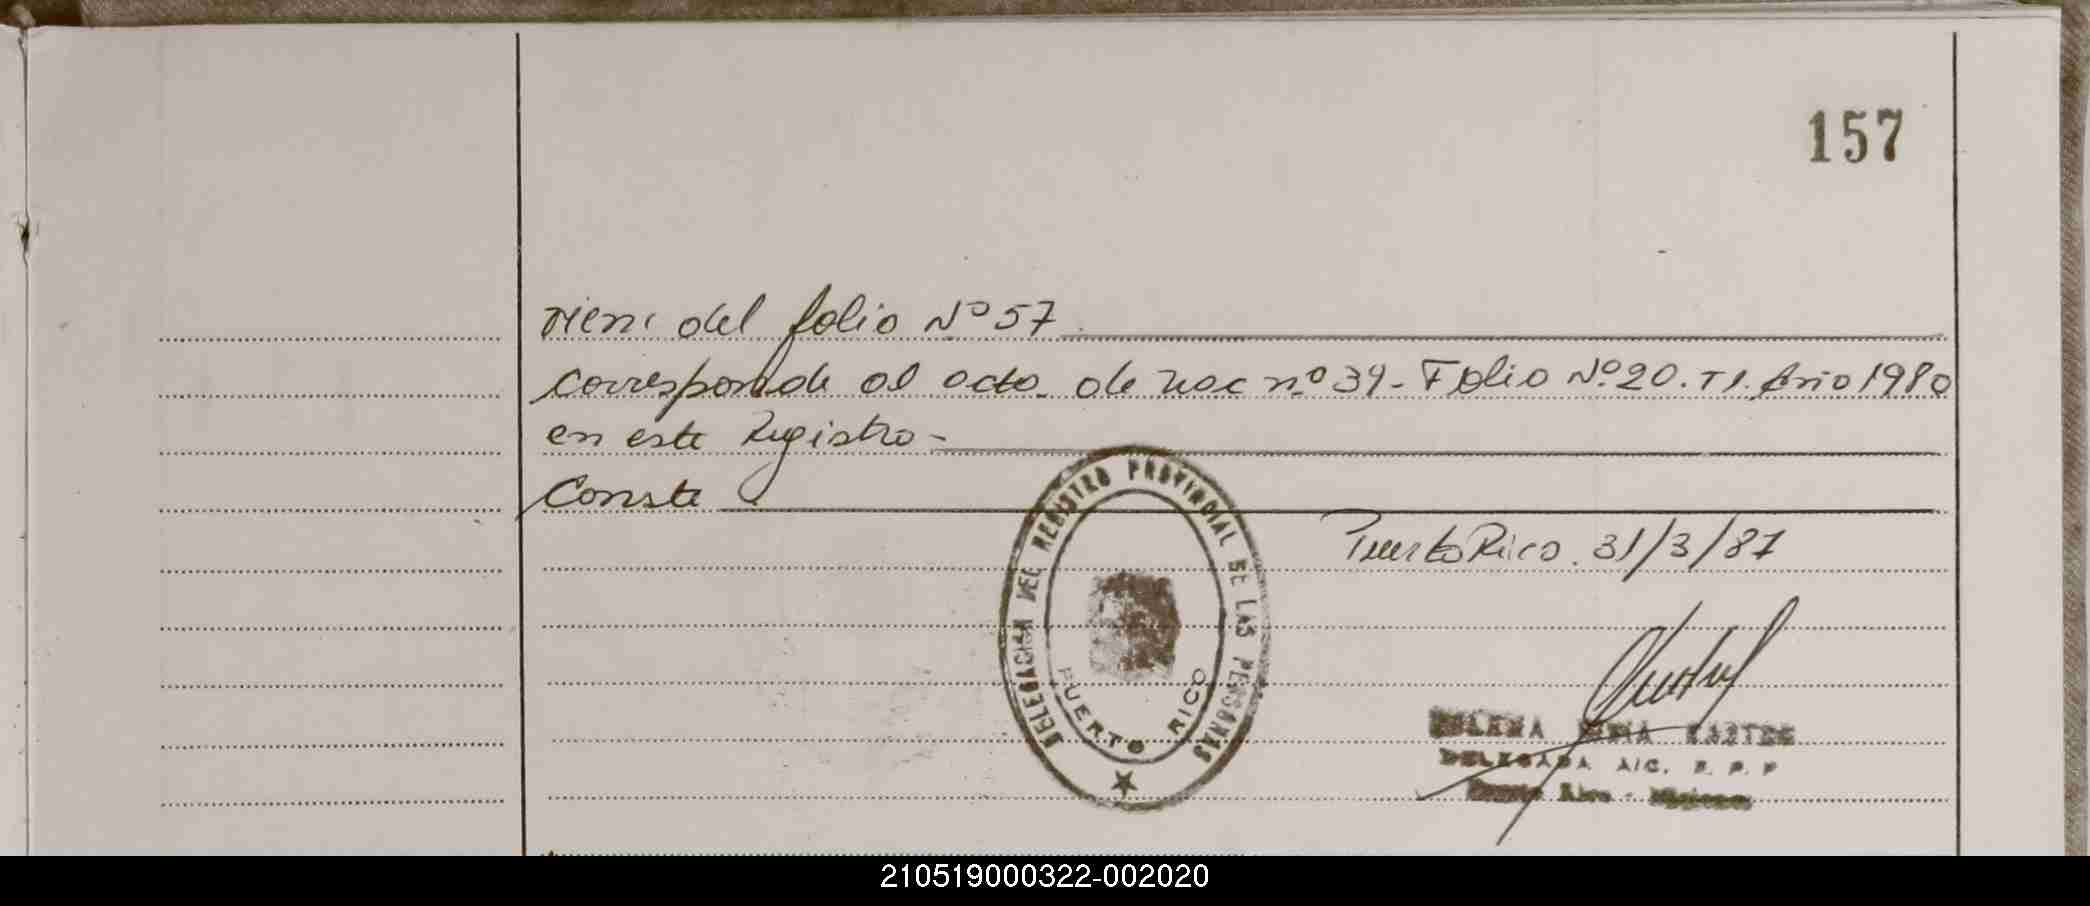 157
Viene del folio Nº 57
Corresponde al acta de nac nº 39- Folio Nº 20. T1. Año 1980
en este Registro-
Conste
Puerto Rico. 31/3/87
DELEGACION DEL REGISTRO PROVINCIAL DE LAS PERSONAS
PUERTO RICO
DELEGADA A/C. R. P. P
Puerto Rico - Misiones
210519000322-002020